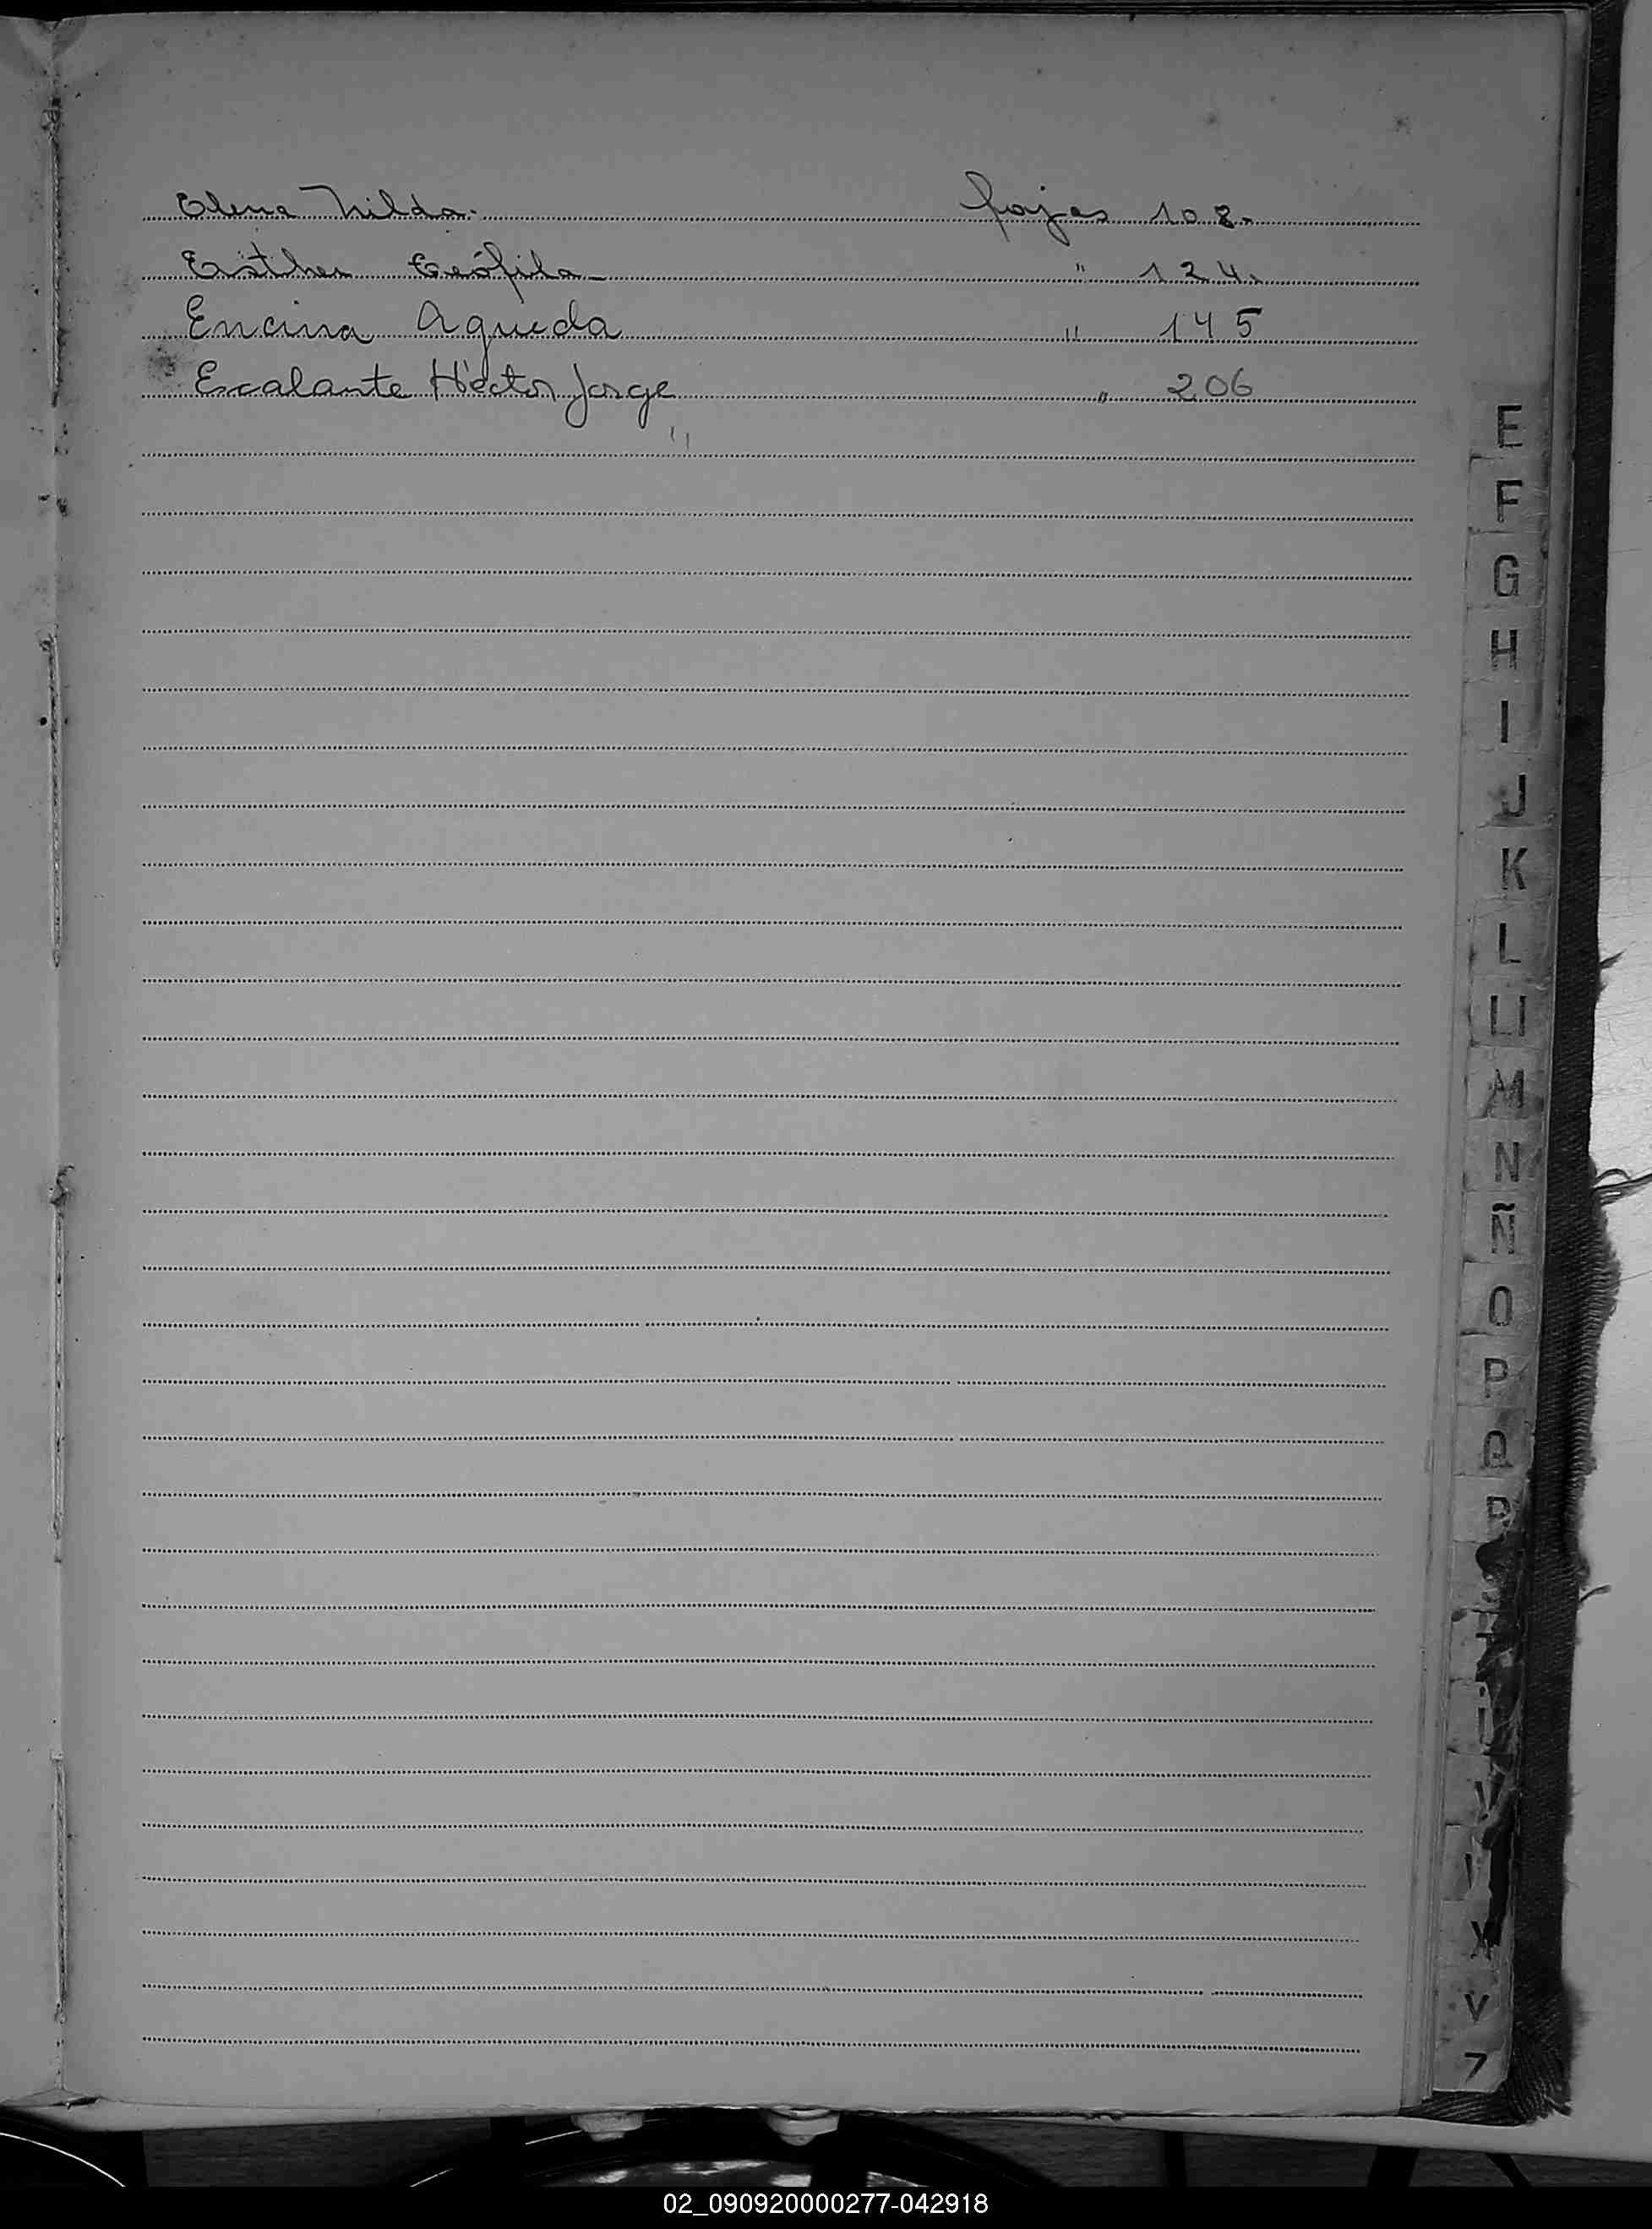 Elena Nilda. fojas 108.
Esther Teófila " 124.
Encina Agueda " 145
Escalante Héctor Jorge " 206
E
F
G
H
I
J
K
L
M
N
Ñ
O
P
Q
R
V
X
02_090920000277-042918